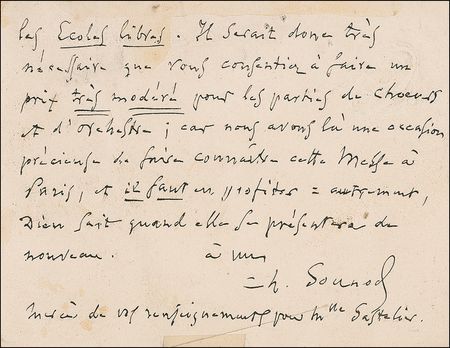 les Ecoles libres. Il serait donc très
nécessaire que vous consentiez à faire un
prix très modéré pour les parties de choeurs
et d'orchestre; car nous avons là une occasion
précieuse de faire connaître cette Messe à
Paris, et il faut en profiter = autrement,
Dieu sait quand elle se présentera de
nouveau. à vous
Ch. Gounod
Merci de vos renseignements pour Mlle